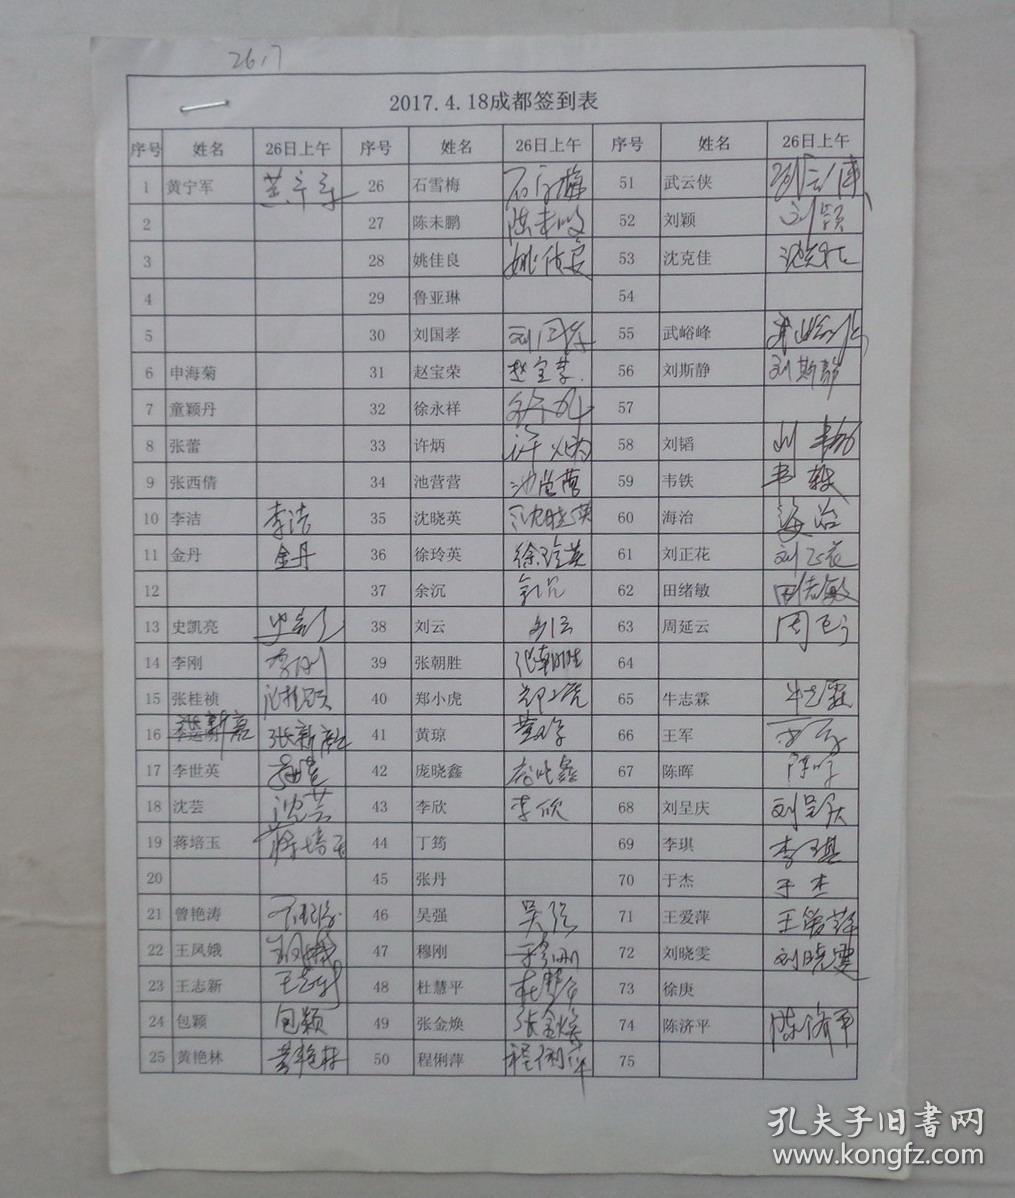 2017.4.18成都签到表
序号 姓名 26日上午 序号 姓名 26日上午 序号 姓名 26日上午
1 黄宁军 黄宁军 26 石雪梅 石雪梅 51 武云侠
2 27 陈未鹏 陈未鹏 52 刘颖 刘颖
3 28 姚佳良 姚佳良 53 沈克佳 沈克佳
4 29 鲁亚琳 54
5 30 刘国孝 刘国孝 55 武峪峰 武峪峰
6 申海菊 31 赵宝荣 赵宝荣 56 刘斯静 刘斯静
7 童颖丹 32 徐永祥 57
8 张蕾 33 许炳 许炳 58 刘韬 刘韬
9 张西倩 34 池营营 池营营 59 韦铁 韦铁
10 李洁 李洁 35 沈晓英 沈晓英 60 海治 海治
11 金丹 金丹 36 徐玲英 徐玲英 61 刘正花 刘正花
12 37 余沉 余沉 62 田绪敏 田绪敏
13 史凯亮 史凯亮 38 刘云 刘云 63 周延云 周延云
14 李刚 李刚 39 张朝胜 张朝胜 64
15 张桂祯 40 郑小虎 郑小虎 65 牛志霖 牛志霖
16 张新嘉 41 黄琼 黄琼 66 王军 王军
17 李世英 42 庞晓鑫 庞晓鑫 67 陈晖 陈晖
18 沈芸 沈芸 43 李欣 李欣 68 刘呈庆 刘呈庆
19 蒋培玉 蒋培玉 44 丁筠 69 李琪 李琪
20 45 张丹 70 于杰 于杰
21 曾艳涛 46 吴强 吴强 71 王爱萍 王爱萍
22 王凤娥 王凤娥 47 穆刚 穆刚 72 刘晓雯 刘晓雯
23 王志新 王志新 48 杜慧平 杜慧平 73 徐庚
24 包颖 包颖 49 张金焕 张金焕 74 陈济平 陈济平
25 黄艳林 黄艳林 50 程俐萍 程俐萍 75
孔夫子旧书网
www.kongfz.com